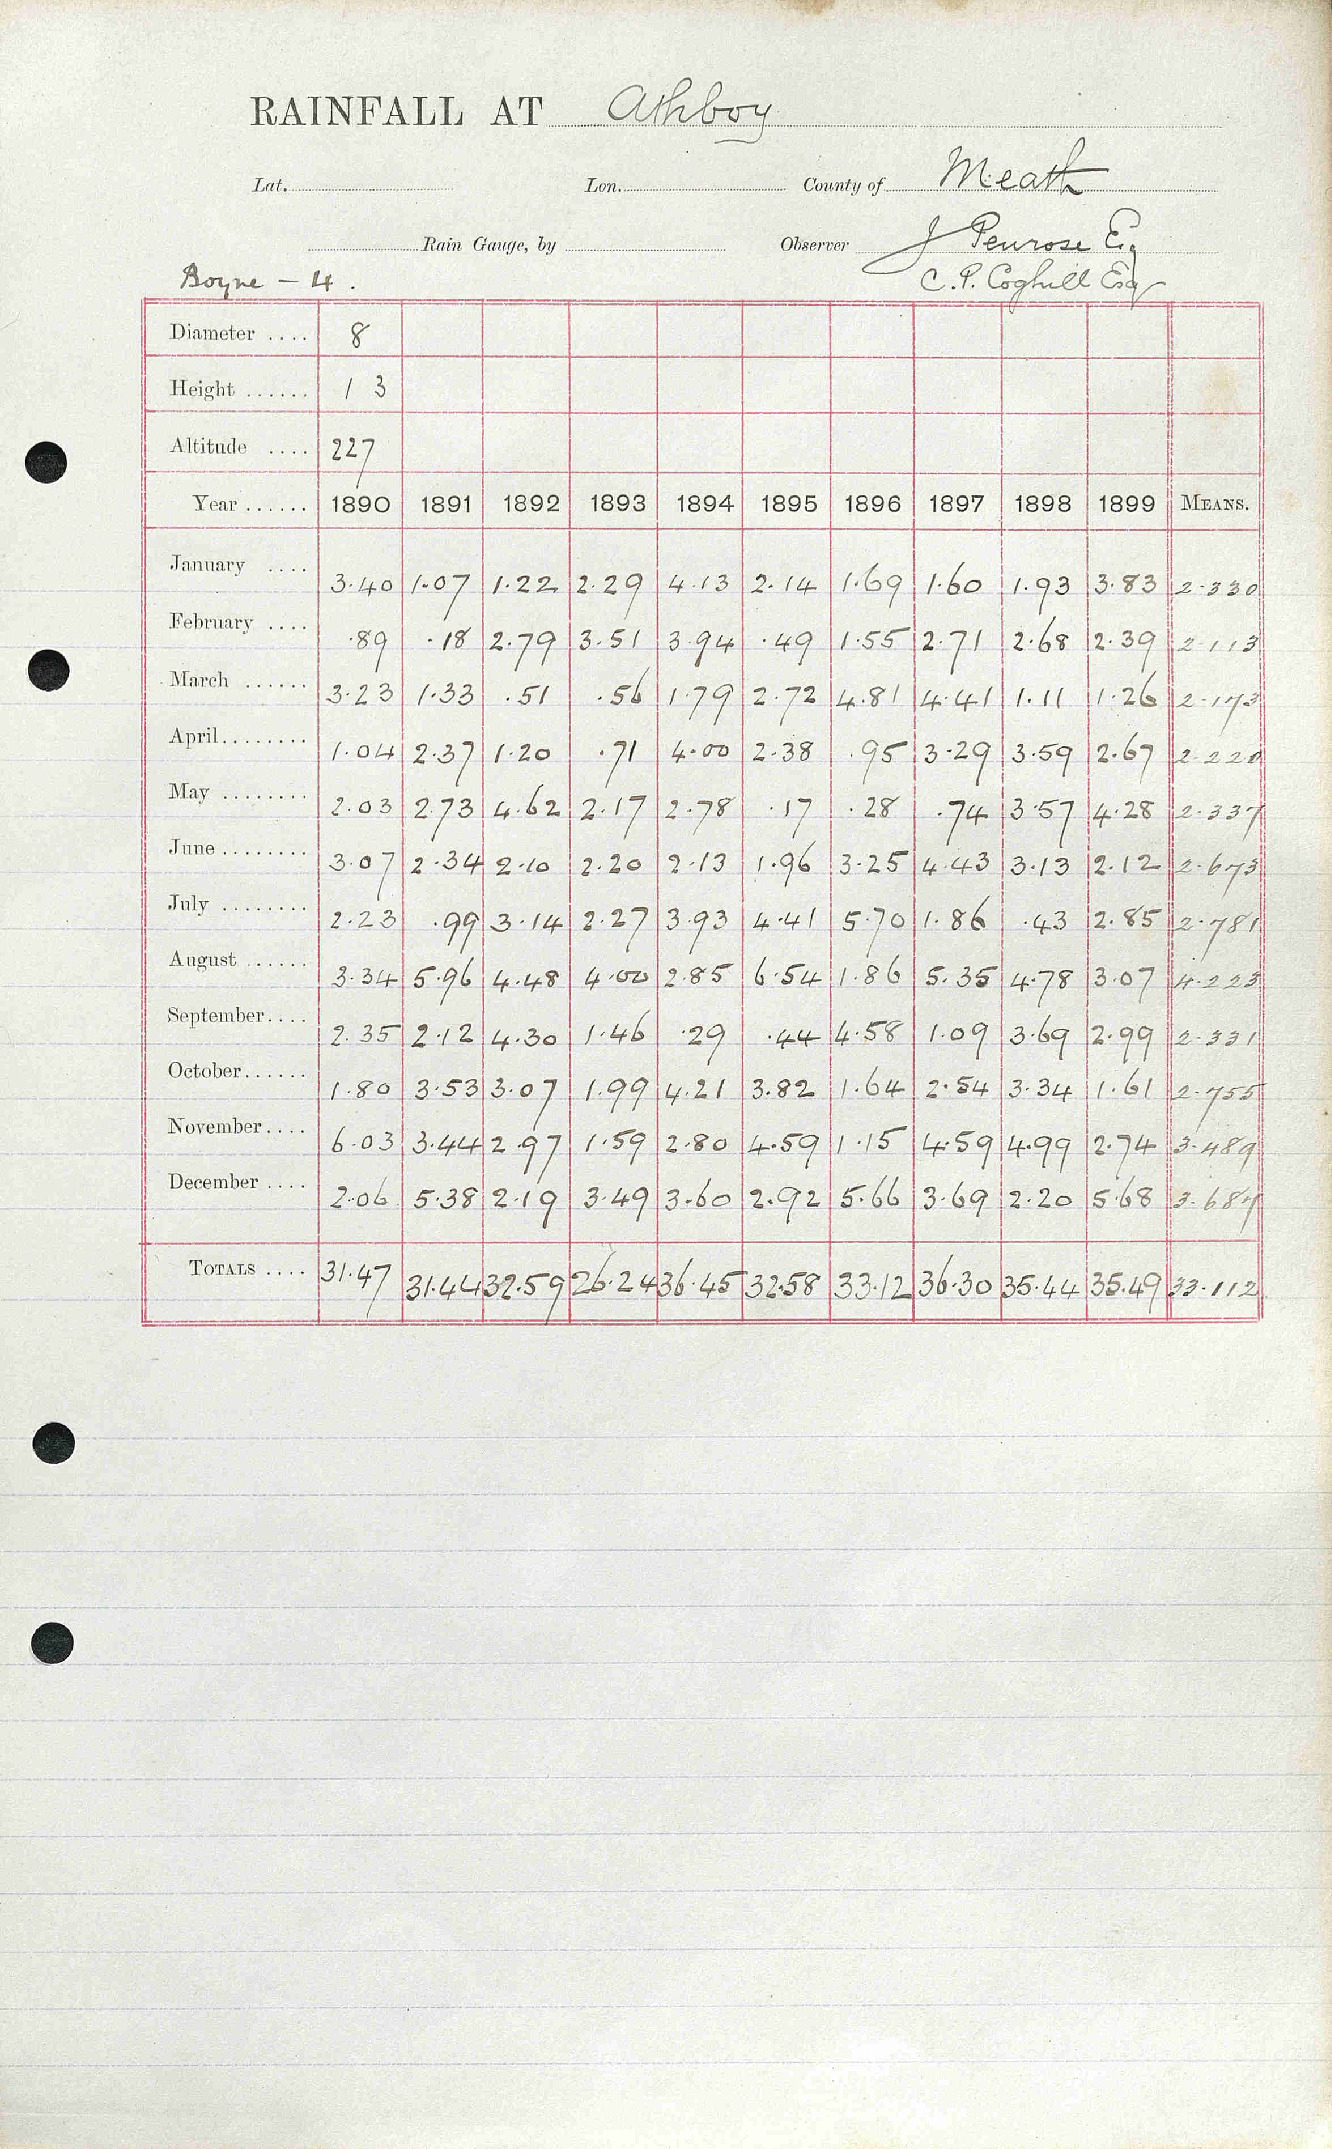 RAINFALL AT Athboy
Lat. Lon. County of Meath
Rain Gauge, by Observer J Penrose Esq
Boyne - 4. C. P. Coghill Esq
Diameter .... 8
Height ...... 1 3
Altitude .... 227
Year ...... 1890 1891 1892 1893 1894 1895 1896 1897 1898 1899 MEANS.
January .... 3.40 1.07 1.22 2.29 4.13 2.14 1.69 1.60 1.93 3.83 2.330
February .... .89 .18 2.79 3.51 3.94 .49 1.55 2.71 2.68 2.39 2.113
March ...... 3.23 1.33 .51 .56 1.79 2.72 4.81 4.41 1.11 1.26 2.173
April........ 1.04 2.37 1.20 .71 4.00 2.38 .95 3.29 3.59 2.67 2.220
May ........ 2.03 2.73 4.62 2.17 2.78 .17 .28 .74 3.57 4.28 2.337
June ........ 3.07 2.34 2.10 2.20 2.13 1.96 3.25 4.43 3.13 2.12 2.673
July ........ 2.23 .99 3.14 2.27 3.93 4.41 5.70 1.86 .43 2.85 2.781
August ...... 3.34 5.96 4.48 4.00 2.85 6.54 1.86 5.35 4.78 3.07 4.223
September.... 2.35 2.12 4.30 1.46 .29 .44 4.58 1.09 3.69 2.99 2.331
October...... 1.80 3.53 3.07 1.99 4.21 3.82 1.64 2.54 3.34 1.61 2.755
November.... 6.03 3.44 2.97 1.59 2.80 4.59 1.15 4.59 4.99 2.74 3.489
December .... 2.06 5.38 2.19 3.49 3.60 2.92 5.66 3.69 2.20 5.68 3.687
TOTALS .... 31.47 31.44 32.59 26.24 36.45 32.58 33.12 36.30 35.44 35.49 33.112